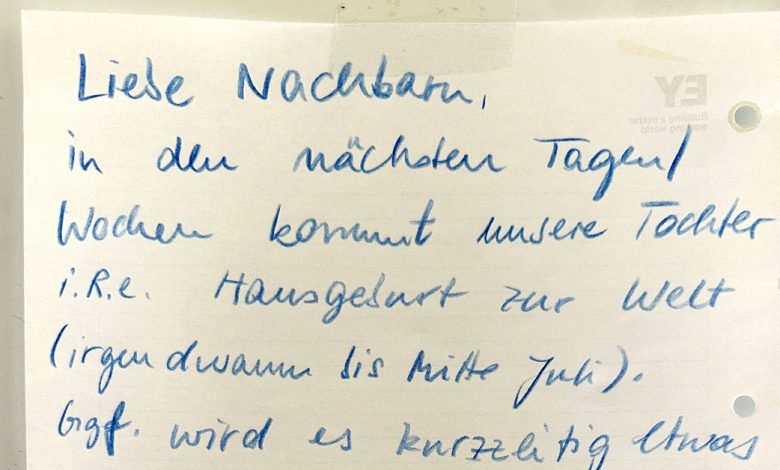 Liebe Nachbarn,
in den nächsten Tagen/
Wochen kommt unsere Tochter
i.R.e. Hausgeburt zur Welt
(irgendwann bis Mitte Juli).
Ggf. wird es kurzzeitig etwas
EY
Building a better
working world